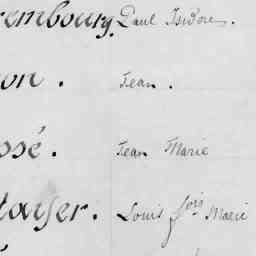 rembourg. Paul Isidore.
on. Jean.
ssé. Jean Marie
tayer. Louis fois Marie